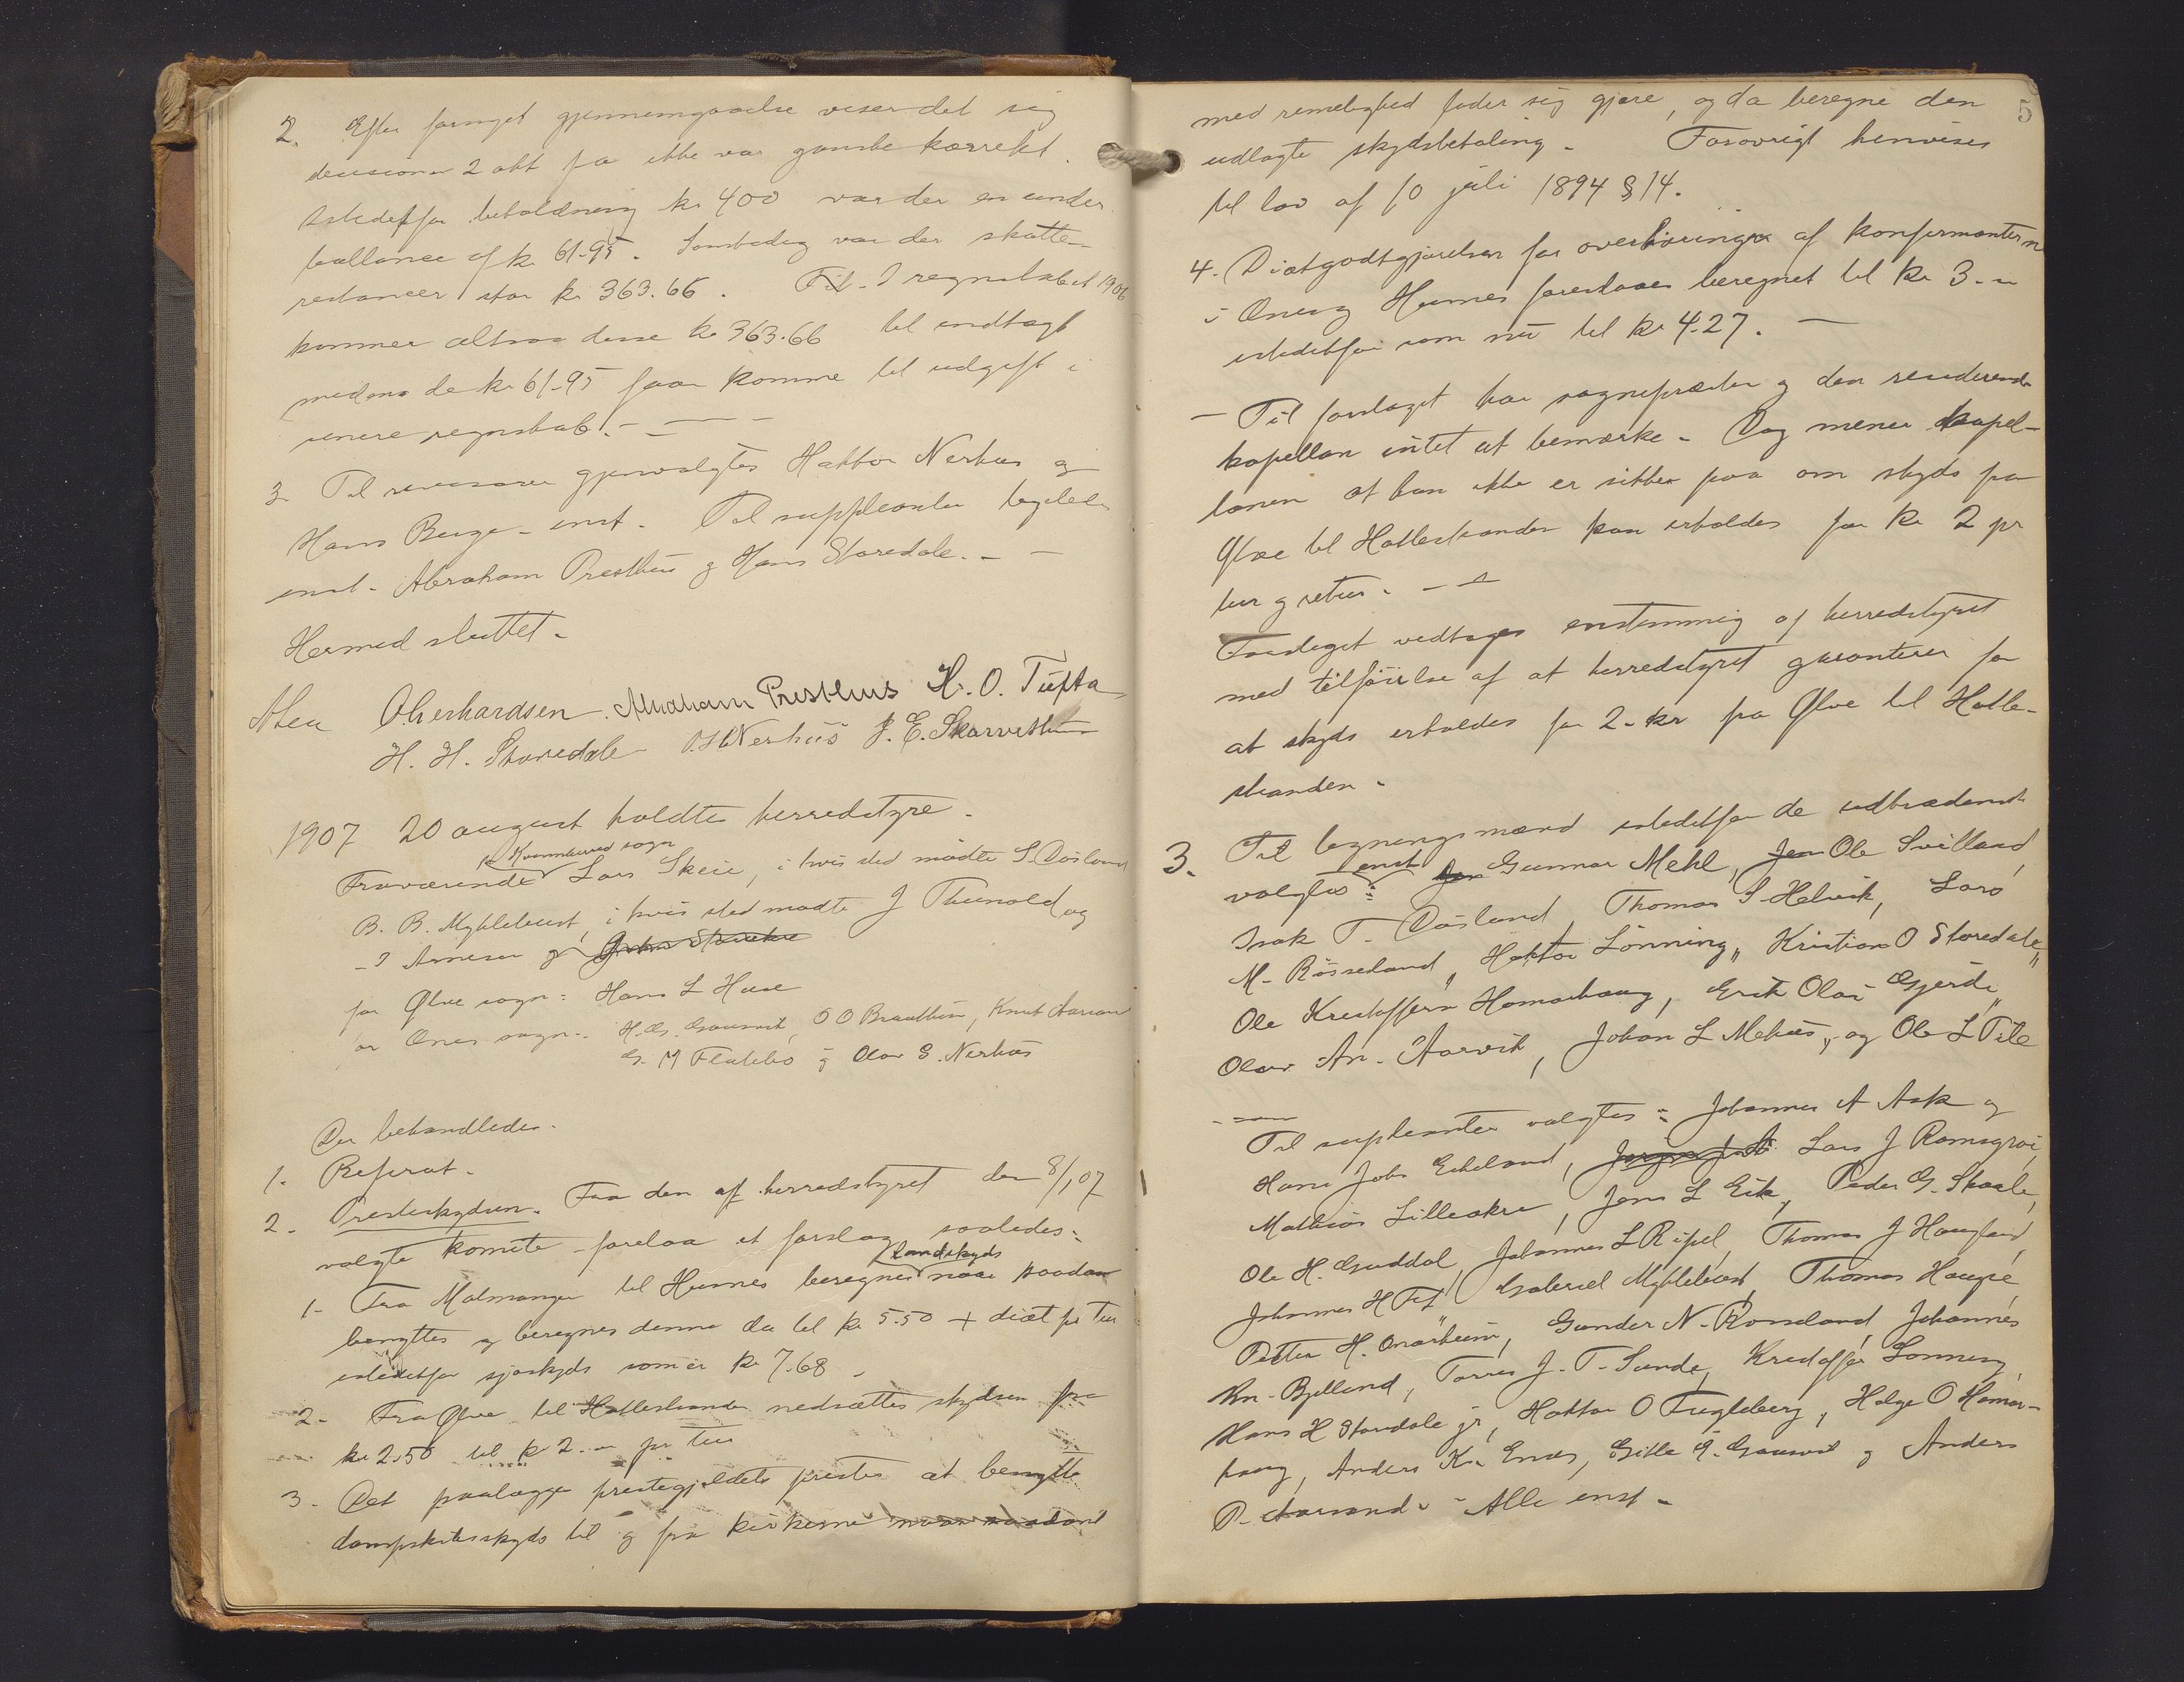 2. Efter fornyet gjennemgaaelse viser det sig
decisionen 2 akt fra ikke var ganske korrekt.
Istedetfor beholdning kr 400 var der en under
ballance af kr 61.95. Samtidig var der skatte-
restancer stor kr 363.66. Til I regnskabet 1906
kommer altsaa disse kr 363.66 til indtægt
medens de kr 61.95 faar komme til udgift i
senere regnskab. -
3. Til revisorer gjenvalgtes Haktor Nerhus og
Hans Berge - enst. Til suppleanter
enst. Abraham Presthus og Hans Storedale. -
Hermed sluttet.
Olverhardsen. Abraham Presthus H. O. Tufta
H. H. Storedale O. H. Nerhus J. E. Skarvethun
1907 20 august holdtes herredstyre.
fr Kvamherred sogn
Fraværende Lars Skeie, i hvis sted mødte S. Døsland
B. B. Myklebust, i hvis sted mødte J Thunold og
- I Arnesen og
for Ølve sogn: Hans L Huse
for Ænes sogn: H. G. Gausvik, O O Braathun, Knut Aarsand
G. M Flatebø og Olav G. Nerhus
Der behandledes.
1. Referat.
2. Presteskydsen. Fra den af herredstyret den 8/1 07
valgte komite forelaa et forslag saaledes:
landskyds
1. Fra Malmanger til Husnes beregnes naar saadan
benyttes og beregnes denne da til kr 5.50 + diæt pr tur
istedetfor sjøskyds som er kr 7.68.
2. Fra Ølve til Hatlestranden nedsættes skydsen fra
kr 2.50 til kr 2.- pr tur
3. Det paalægges prestegjeldets prester at benytte
dampskibsskyds til og fra kirkerne naar saadant
5
med rimelighed lader sig gjøre, og da beregne den
udlagte skydsbetaling. Forøvrigt henvises
til lov af 10 juli 1894 § 14.
4. Diætgodtgjørelsen for overhøringer af konfirmanterne
i Ænes og Husnes foreslaaes beregnet til kr 3.-
istedetfor som nu til kr 4.27. -
- Til forslaget har sognepræsten og den residerende
kapellan intet at bemærke. Dog mener kapel-
lanen at han ikke er sikker paa om skyds fra
Ølve til Hatlestranden kan erholdes for kr 2 pr
tur og retur. -
Forslaget vedtages enstemmig af herredstyret
med tilføielse af at herredstyret garanterer for
at skyds erholdes for 2.- kr fra Ølve til Hatle-
stranden.
3. Til ligningsmænd istedetfor de udtrædende
valgtes enst: Gunnar Mehl, Jen Ole Svilland,
Isak T. Døsland, Thomas S Helvik, Lars
M. Røsseland, Haktor Lønning, Kristian O Storedale,
Ole Kristoffersen Hamarhaug, Erik Olai Gjerde,
Olav An. Aarvik, Johan L Mehus, og Ole L Tite
Til supleanter valgtes: Johannes A Ask og
Hans Johs Eikeland, Lars J Ramsgrø,
Mathias Lilleakre, Jens L Eik, Peder G. Skaale,
Ole H. Guddal, Johannes L Ripel, Thomas J Haugland,
Johannes H Fet, Gabriel Myklebust, Thomas Hauge,
Petter H. Onarheim, Gunder N. Rosseland, Johannes
Kn. Bjelland, Torres J. T. Sunde, Kristoffer Lønning,
Hans H Storedale jr, Haktor O Fugleberg, Helge O Hamar-
haug, Anders Kn Enes, Gitle G. Gausvik og Anders
P. Aarsand. - Alle enst.